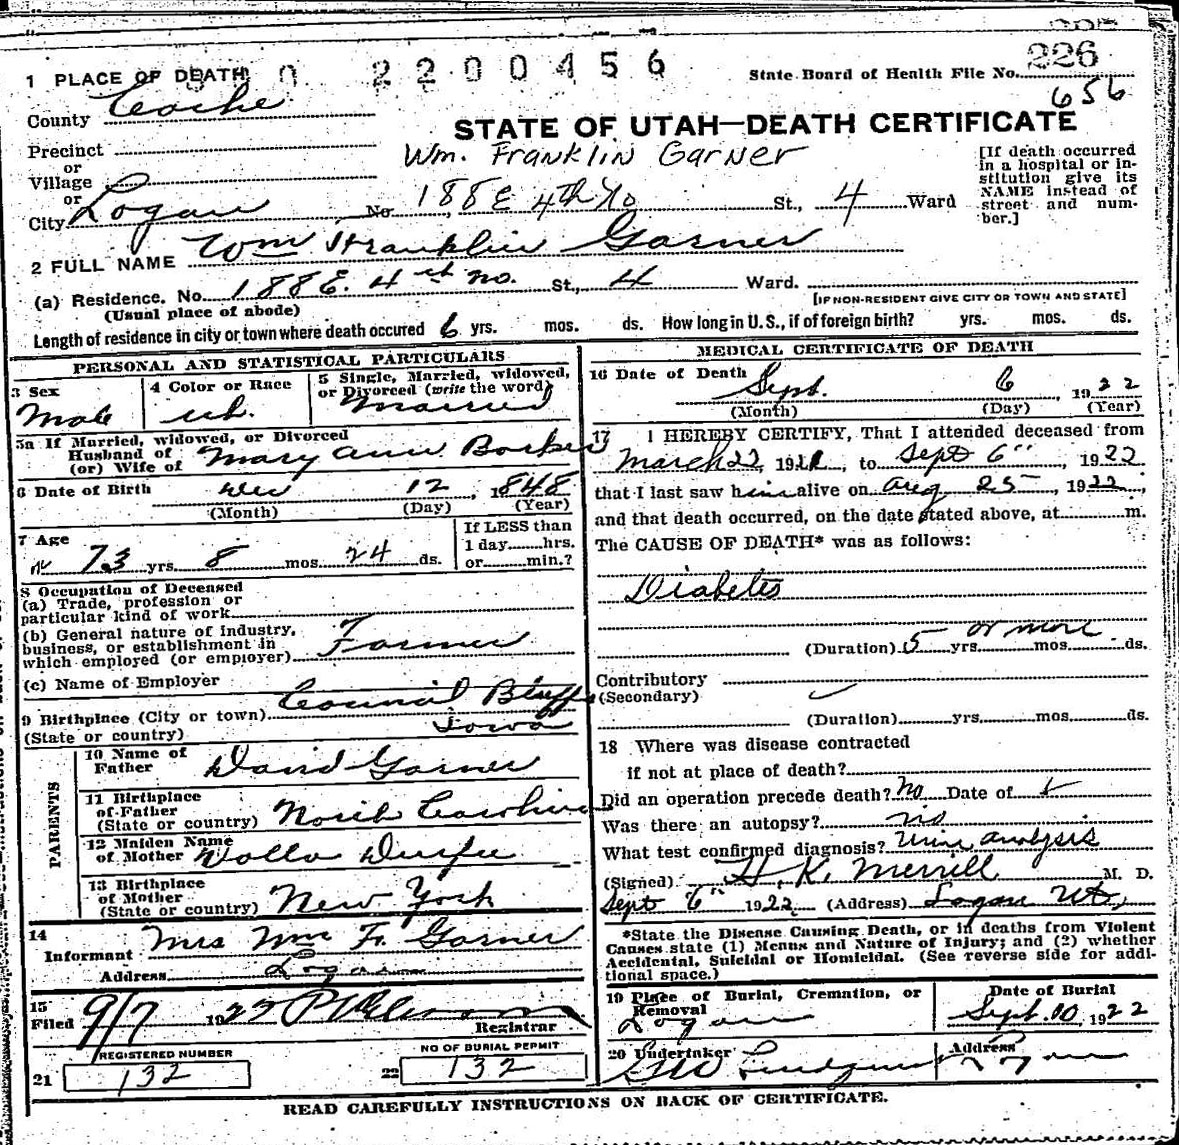 2200456
State Board of Health File No. 226
656
1 PLACE OF DEATH
County Cache
STATE OF UTAH—DEATH CERTIFICATE
Precinct
or
Village
or
City Logan No. 188 E 4th No St., 4 Ward
Wm. Franklin Garner
[If death occurred
in a hospital or in-
stitution give its
NAME instead of
street and num-
ber.]
2 FULL NAME Wm Franklin Garner
(a) Residence. No. 188 E. 4th no. St., 4 Ward.
(Usual place of abode)
[IF NON-RESIDENT GIVE CITY OR TOWN AND STATE]
Length of residence in city or town where death occured 6 yrs. mos. ds. How long in U.S., if of foreign birth? yrs. mos. ds.
PERSONAL AND STATISTICAL PARTICULARS
3 Sex
Male
4 Color or Race
wh.
5 Single, Married, widowed,
or Divorced (write the word)
Married
5a If Married, widowed, or Divorced
Husband of
(or) Wife of Mary Ann Barker
6 Date of Birth Dec 12, 1848
(Month) (Day) (Year)
7 Age
73 yrs 8 mos 24 ds.
If LESS than
1 day hrs.
or min.?
8 Occupation of Deceased
(a) Trade, profession or
particular kind of work
(b) General nature of Industry,
business, or establishment in
which employed (or employer) Farmer
(c) Name of Employer
9 Birthplace (City or town) Council Bluffs
(State or country) Iowa
PARENTS
10 Name of
Father David Garner
11 Birthplace
of Father
(State or country) North Carolina
12 Maiden Name
of Mother Dolla Durfee
13 Birthplace
of Mother
(State or country) New York
14
Informant Mrs Wm F. Garner
Address Logan
15
Filed 9/7 1922
Registrar
REGISTERED NUMBER
21 132
NO OF BURIAL PERMIT
22 132
MEDICAL CERTIFICATE OF DEATH
16 Date of Death Sept. 6, 1922
(Month) (Day) (Year)
17 I HEREBY CERTIFY, That I attended deceased from
March 22, 1921, to Sept 6", 1922
that I last saw him alive on Aug 25, 1922,
and that death occurred, on the date stated above, at m.
The CAUSE OF DEATH* was as follows:
Diabetes
(Duration) 5 or more yrs. mos. ds.
Contributory
(Secondary)
(Duration) yrs. mos. ds.
18 Where was disease contracted
if not at place of death?
Did an operation precede death? No Date of
Was there an autopsy? no
What test confirmed diagnosis? Urine analysis
(Signed) H. K. Merrill M. D.
Sept 6" 1922 (Address) Logan Ut,
*State the Disease Causing Death, or in deaths from Violent
Causes state (1) Menus and Nature of Injury; and (2) whether
Accidental, Suicidal or Homicidal. (See reverse side for addi-
tional space.)
19 Place of Burial, Cremation, or
Removal
Logan
Date of Burial
Sept. 10, 1922
20 Undertaker
Address
Logan
READ CAREFULLY INSTRUCTIONS ON BACK OF CERTIFICATE.